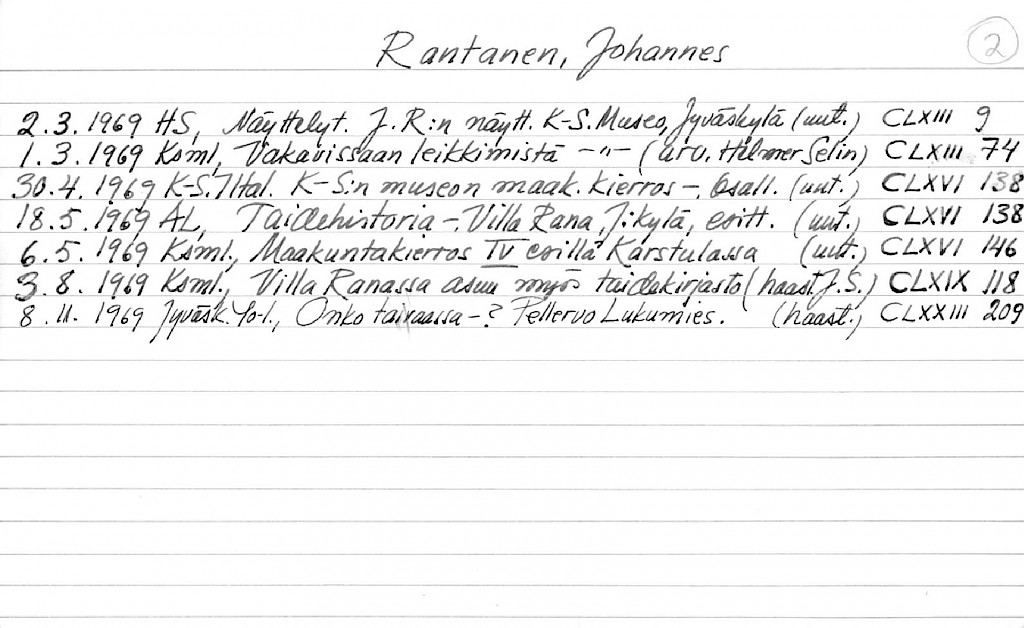 Rantanen, Johannes
2
2.3.1969 HS, Näyttelyt. J.R:n näytt. K-S. Museo, Jyväskylä (uut.) CLXIII 9
1.3.1969 Ksml, Vakavissaan leikkimistä -"- (arv. Hilmer Selin) CLXIII 74
30.4.1969 K-S. Ital. K-S:n museon maak. kierros -, osall. (uut.) CLXVI 138
18.5.1969 AL, Taidehistoria -, Villa Rana, J:kylä, esitt. (uut.) CLXVI 138
6.5.1969 Ksml., Maakuntakierros IV esillä Karstulassa (uut.) CLXVI 146
3.8.1969 Ksml., Villa Ranassa asuu myös taidekirjasto (haast. J.S.) CLXIX 118
8.11.1969 Jyväsk. Yo-l., Onko taivaassa -? Pellervo Lukumies. (haast.) CLXXIII 209